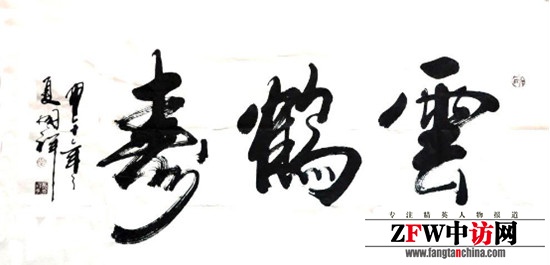 雲鶴壽
夏國祥
专注精英人物报道
ZFW中访网
www.fangtanchina.com